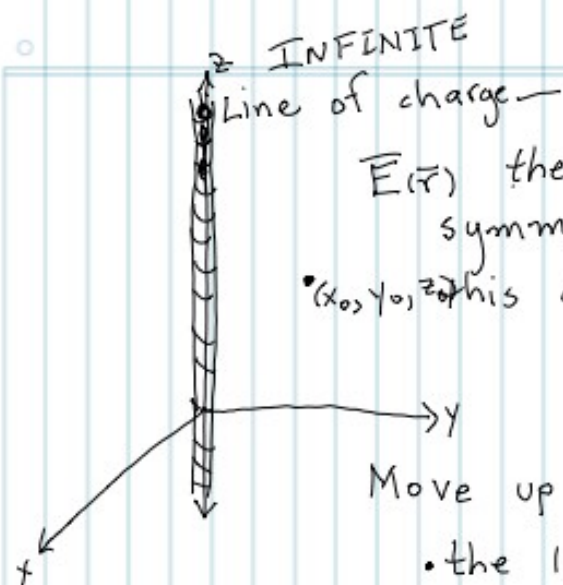 z INFINITE
Line of charge—
E(r) the
symm
•(x₀, y₀, z₀) this
y
Move up
x
• the l